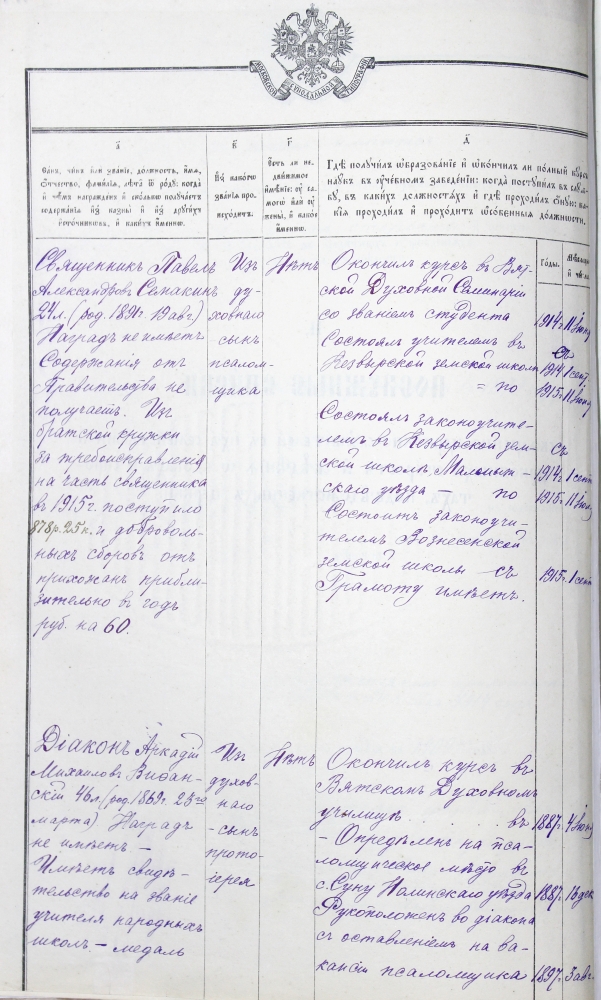 МОСКОВСКОЙ СѴНОДАЛЬНОЙ ТИПОГРАФІИ
а҃
Санъ, чинъ или званіе, должность, имѧ,
ѻтчество, фамиліѧ, лѣта ѿ роду: когда
и чѣмъ награжденъ и сколькѡ получаетъ
содержаніѧ изъ казны и изъ другихъ
источникѡвъ, и какѡе именнѡ.
в҃
Изъ какѡгѡ
званіѧ про-
исходитъ.
г҃
Есть ли не-
движимое
имѣніе: оу са-
могѡ или оу
жены, и какѡе
именнѡ.
д҃
Гдѣ получилъ ѡбразованіе и ѡкончилъ ли полный курсъ
наукъ въ оучебномъ заведеніи: когда поступилъ въ служ-
бу, въ какихъ должностѧхъ и гдѣ проходилъ ѻную: ка-
кіѧ проходилъ и проходитъ ѡсобенныѧ должности.
Годы.
Священникъ Павелъ
Александровъ Семакинъ
24 л. (род. 1891 г. 19 авг.)
Наградъ не имѣетъ
Содержанія отъ
Правительства не
получаетъ. Изъ
братской кружки
за требоисправленія
на часть священника
въ 1915 г. поступило
878 р. 25 к. и доброволь-
ныхъ сборовъ отъ
прихожанъ прибли-
зительно въ годъ
руб. на 60.
Изъ
ду-
ховнаго
сынъ
псалом-
щика
Нѣтъ
Окончилъ курсъ въ Вят-
ской Духовной Семинаріи
со званіемъ студента 1914 г. 11 іюня
Состоялъ учителемъ въ
Кезвырской земской школѣ съ 1914 1 сент
= по 1915 г. 11 іюня
Состоялъ законоучите-
лемъ въ Кезвырской зем-
ской школѣ, Малмыж- съ 1914 г. 1 сент
скаго уѣзда по 1915 г. 11 іюня
Состоитъ законоучи-
телемъ Вознесенской
земской школы съ 1915 г. 1 сент
Грамоту имѣетъ.
Діаконъ Аркадій
Михаиловъ
скій 46 л. (род. 1869 г. 25го
марта) Наградъ
не имѣетъ –
Имѣетъ свидѣ-
тельство на званіе
учителя народныхъ
школъ – медаль
Изъ
духов-
наго
- сынъ
прото-
іерея
Нѣтъ
Окончилъ курсъ въ
Вятскомъ Духовномъ
училищѣ . . . . въ 1887 г. 4 іюня
– Опредѣленъ на пса-
ломщическое мѣсто въ
с. Суну Нолинскаго уѣзда 1887 г. 16 дек
Рукоположенъ во діакона
съ оставленіемъ на ва-
кансіи псаломщика 1897 г. 3 авг.